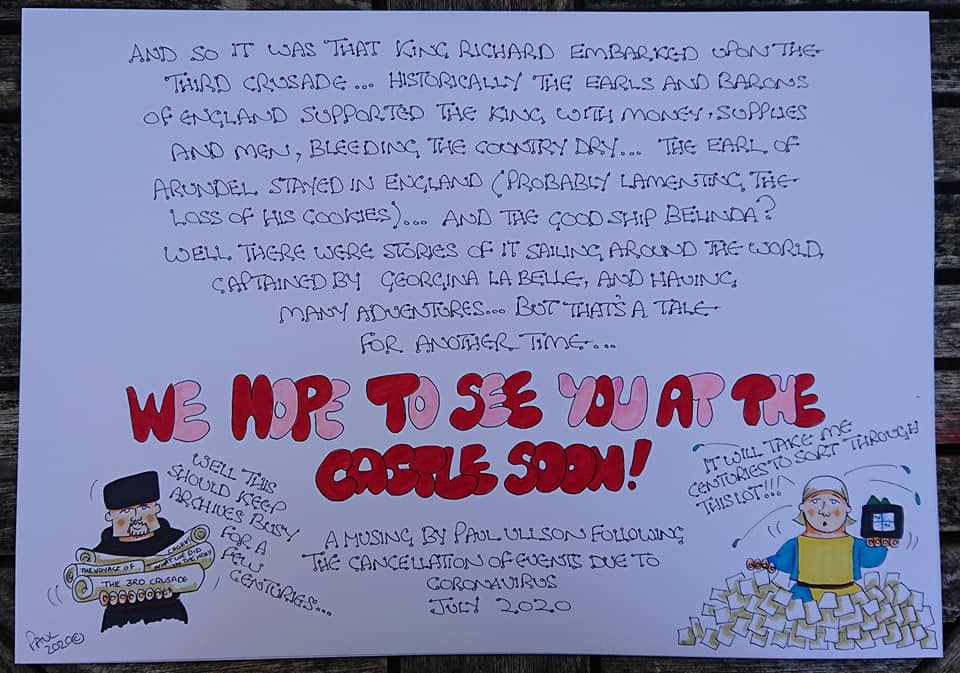 AND SO IT WAS THAT KING RICHARD EMBARKED UPON THE
THIRD CRUSADE... HISTORICALLY THE EARLS AND BARONS
OF ENGLAND SUPPORTED THE KING WITH MONEY, SUPPLIES
AND MEN, BLEEDING THE COUNTRY DRY... THE EARL OF
ARUNDEL STAYED IN ENGLAND (PROBABLY LAMENTING THE
LOSS OF HIS COOKIES)... AND THE GOOD SHIP BELINDA?
WELL THERE WERE STORIES OF IT SAILING AROUND THE WORLD,
CAPTAINED BY GEORGINA LA BELLE, AND HAVING
MANY ADVENTURES... BUT THAT'S A TALE
FOR ANOTHER TIME...
WE HOPE TO SEE YOU AT THE
CASTLE SOON!
WELL THIS
SHOULD KEEP
ARCHIVES BUSY
FOR A
FEW
CENTURIES...
THE VOYAGE OF
WHAT WE DID
IN THE HOLY
THE 3RD CRUSADE
PAUL
2020©
A MUSING BY PAUL ULLSON FOLLOWING
THE CANCELLATION OF EVENTS DUE TO
CORONAVIRUS
JULY 2020
IT WILL TAKE ME
CENTURIES TO SORT THROUGH
THIS LOT!!!